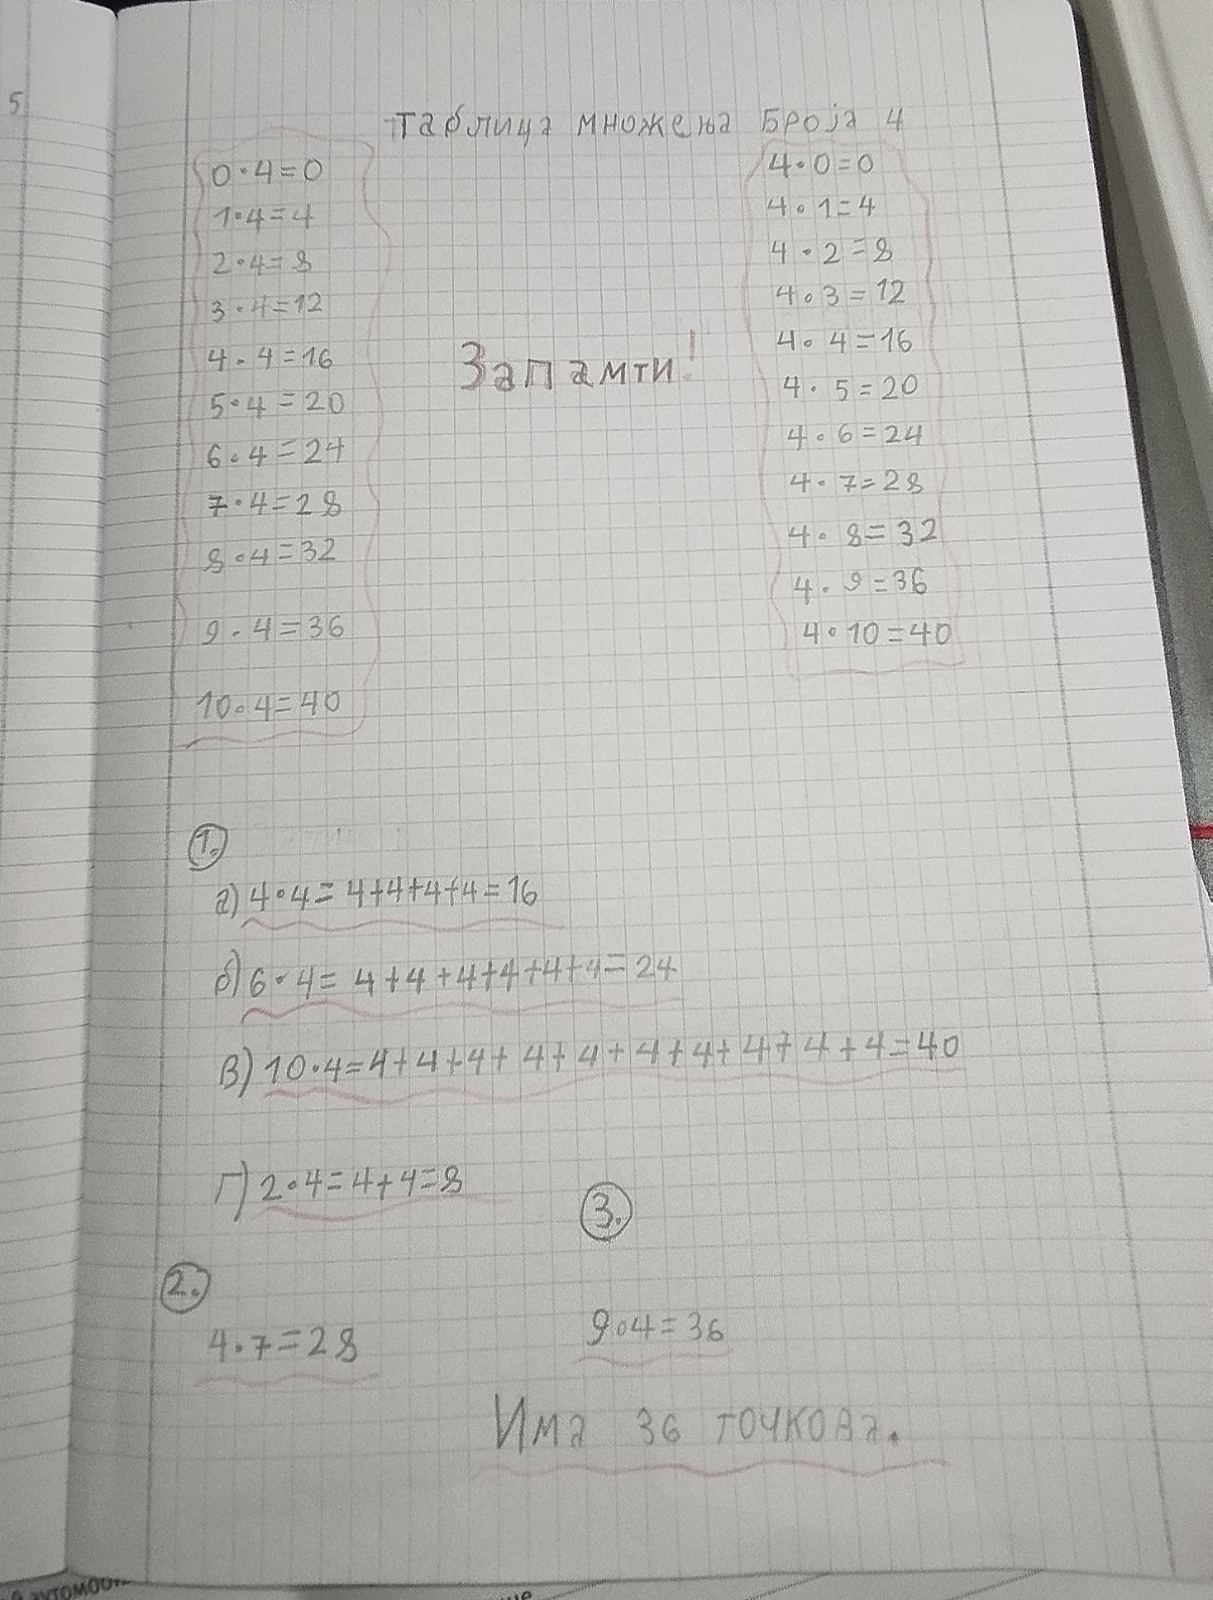 5
Таблица множења Броја 4
0·4=0
1·4=4
2·4=8
3·4=12
4·4=16
5·4=20
6·4=24
7·4=28
8·4=32
9·4=36
10·4=40
Запамти!
4·0=0
4·1=4
4·2=8
4·3=12
4·4=16
4·5=20
4·6=24
4·7=28
4·8=32
4·9=36
4·10=40
1.
а) 4·4=4+4+4+4=16
б) 6·4=4+4+4+4+4+4=24
в) 10·4=4+4+4+4+4+4+4+4+4+4=40
г) 2·4=4+4=8
2.
4·7=28
3.
9·4=36
Има 36 точкова.